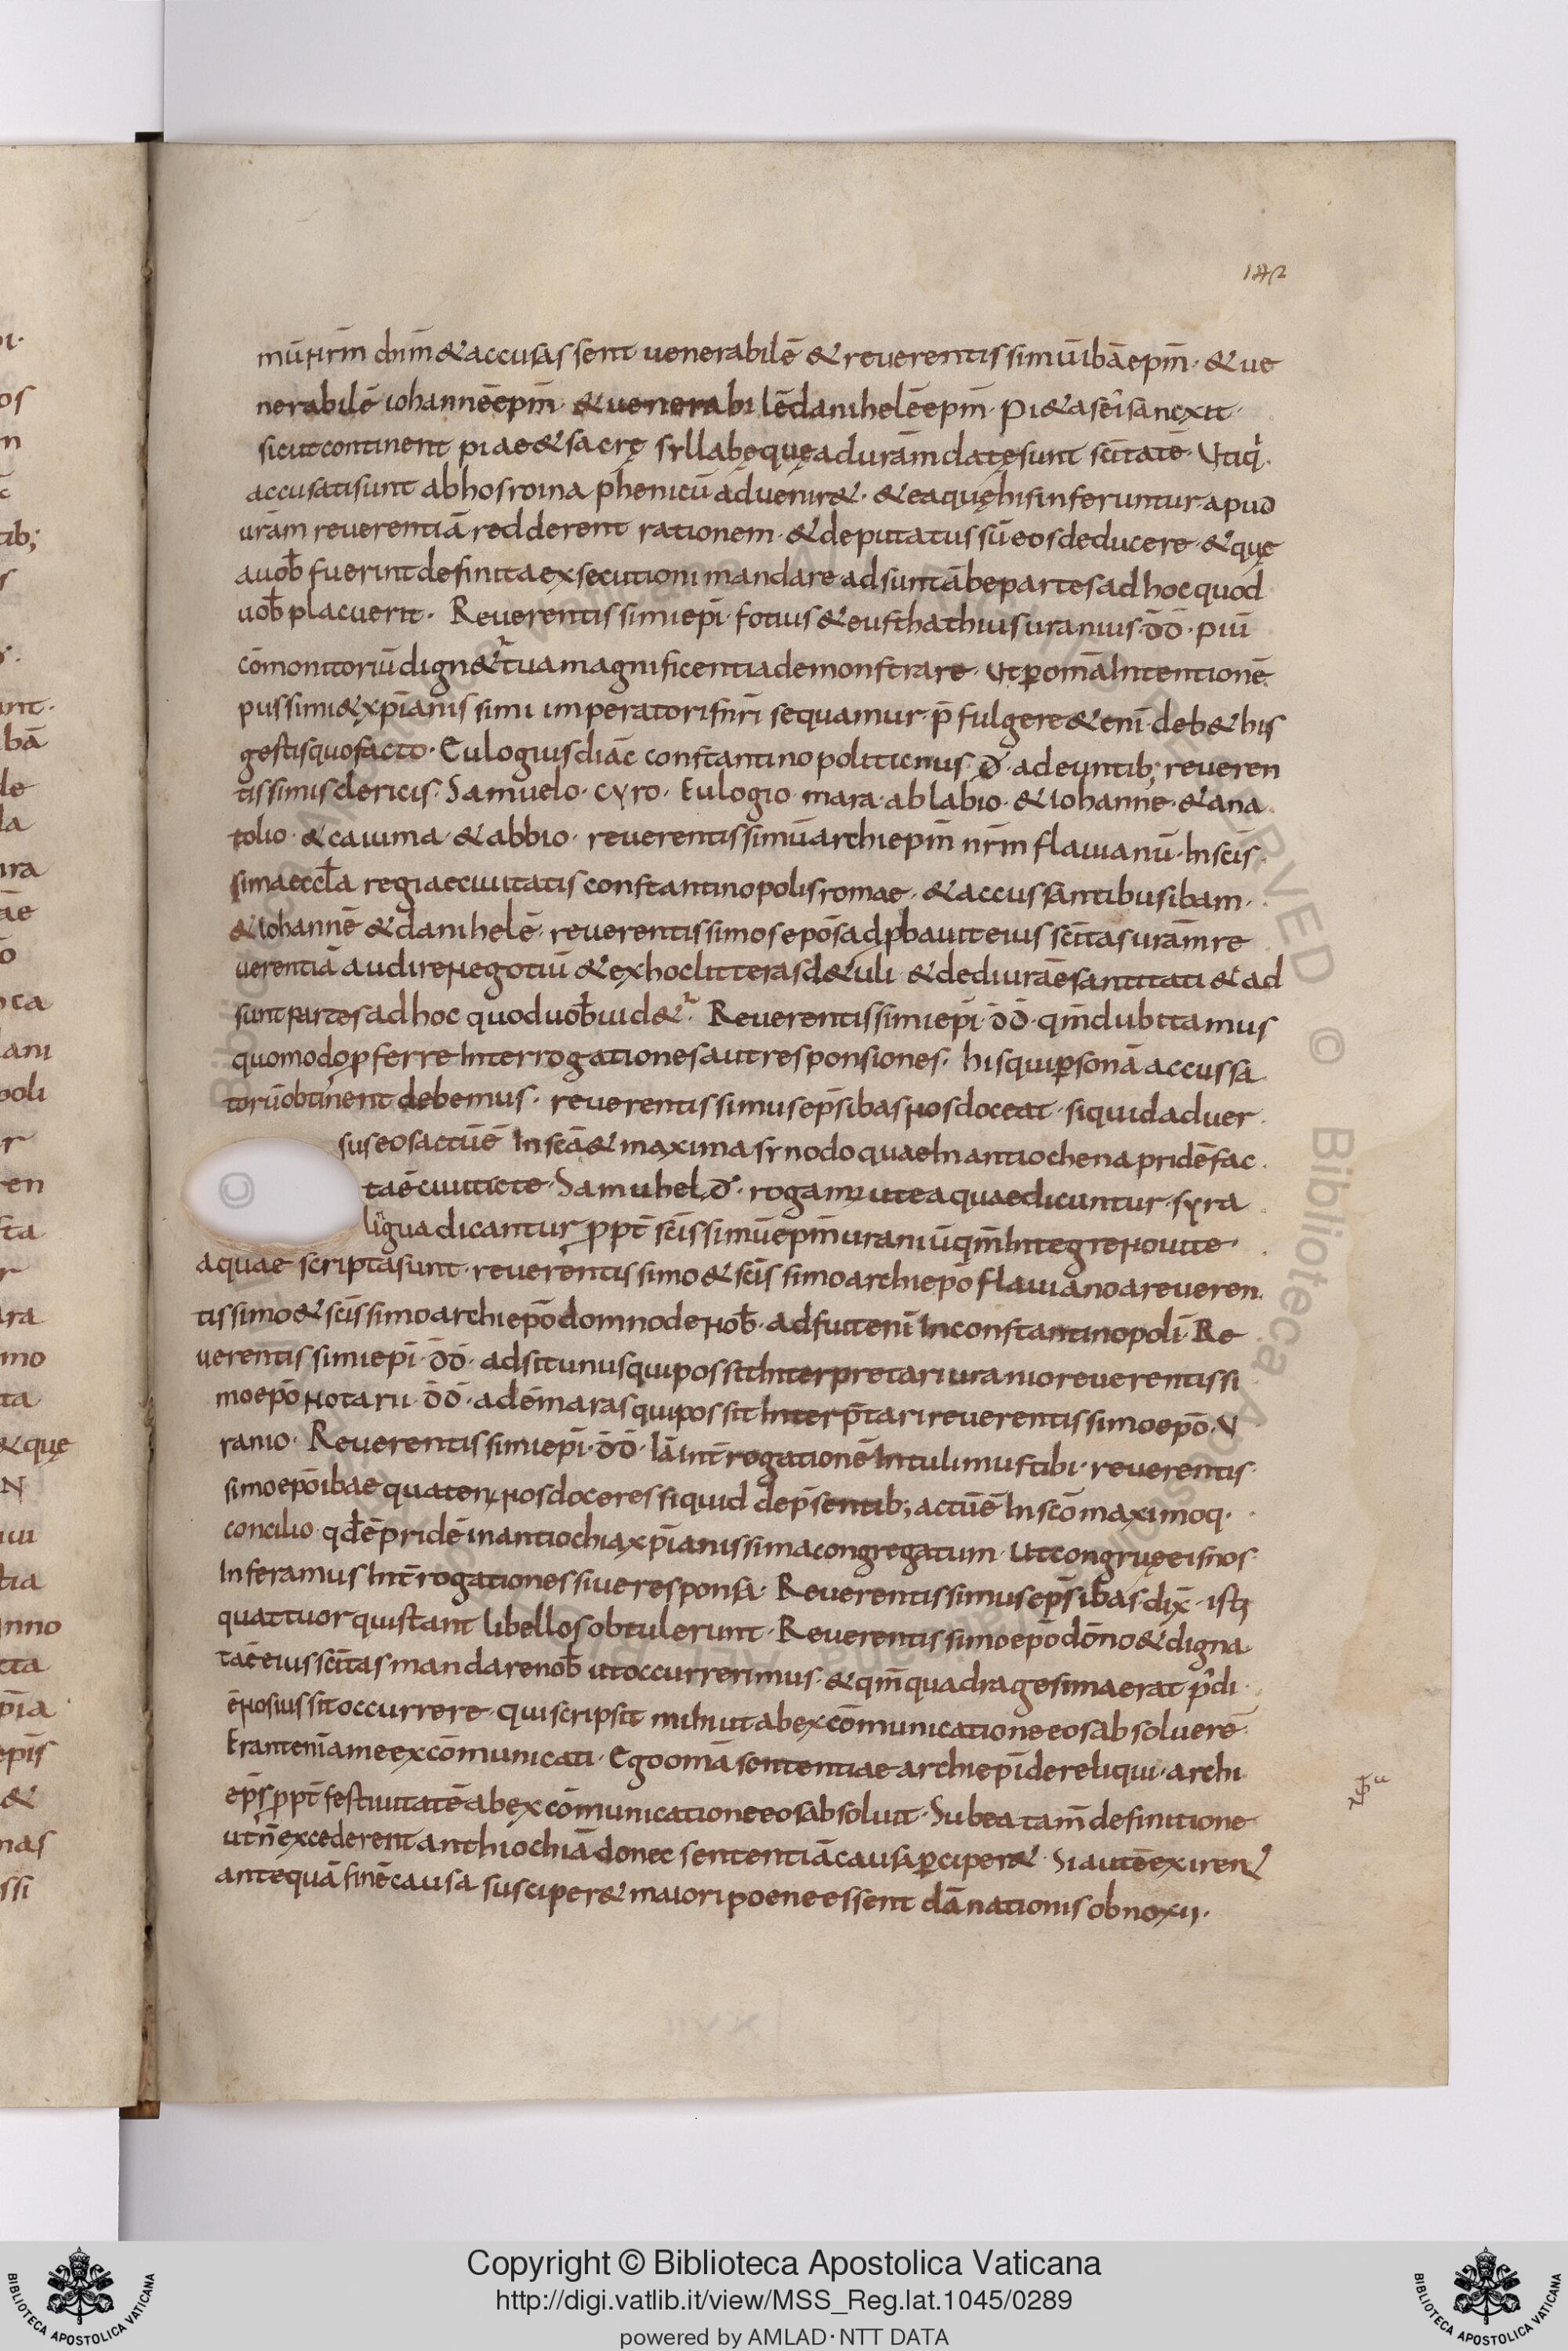 142
mū nr̄m dn̄m & accusassent uenerabilē & reuerentissimū ibā epm̄ · & ue
nerabilē iohannē epm̄ & uenerabilē danihelē epm̄ · pi&as ei sancxit ·
sicut continent piae & sacrę syllabę quę ad urām datę sunt sc̄itatē · Utiq;
accusati sunt ab hosroina phenicū aduenir& · & ea quę his inferuntur apud
urām reuerentiā redderent rationem · & deputatus sū eos deducere · & quę
a uob̄ fuerint definita exsecutioni mandare adsunt ābe partes ad hoc quod
uob̄ placuerit · Reuerentissimi epī · fotius & eusthathius uranius · d̄d̄ · piū
cōmonitoriū dign&ur tua magnificentia demonstrare · Ut p omā Intentionē
piissimi & xp̄ianissimi imperatoris nr̄i sequamur · p̄fulgere & enī deb& his
gestis quo facto · Eulogius diāc constantinopoliticnus · d̄ · adeuntib; reueren
tissimis clericis · Samuelo · cyro · Eulogio · mara · ablabio · & Iohanne · & ana
tolio · & caiuma · & abbio · reuerentissimū archiepm̄ nr̄m flauianū · In scīs
sima eccl̄a regiae ciuitatis constantinopolis romae · & accussantibus ibam ·
& Iohannē & danihelē · reuerentissimos epōs adpbauit eius sc̄itas urām re
uerentiā audire Negotiū & ex hoc litteras d&uli & dedi urāe santitati & ad
sunt partes ad hoc quod uob̄ uid&ur · Reuerentissimi epī · d̄d̄ · qm̄ dubitamus
quomodo pferre Interrogationes aut responsiones · his qui psonā accussa
toriū obtinent debemus · reuerentissimus ep̄s ibas Nos doceat · siquid aduer
sus eos actū ē In scā & maxima synodo quae In antiochena pridē fac
ta ē ciuitate · Samuhel · d̄ · rogamus ut ea quae dicuntur · syra
lingua dicantur ppt̄ scīssimū epm̄ uraniū qm̄ Integre Nouit ·
a quae scripta sunt · reuerentissimo & scīssimo archiepō flauiano a reueren
tissimo & scīssimo archiepō domno de Nob̄ · adfuit enī In constantinopoli · Re
uerentissimi epī · d̄d̄ · adsit unus qui possit Interpretari uranio reuerentissi
mo epō Notarii · d̄d̄ · adē maras qui possit Interp̄tari reuerentissimo epō · U
ranio · Reuerentissimi epī · d̄d̄ · Iā Int̄rogationē Intulimus tibi · reuerentis
simo epō ibae quaten; Nos doceres siquid de p̄sentib; actū ē In scō maximoq ·
concilio · qd̄ ē pridē in antiochia xp̄ianissima congregatum · Ut congruę eis nos
Inferamus Int̄rogationes siue responsa · Reuerentissimus ep̄s ibas dix̄ · isti
quattuor qui stant libellos obtulerunt · Reuerentissimo epō dōno & digna
ta ē eius sc̄itas mandare nob̄ ut occurrerimus · & qm̄ quadragesima erat p̄di
ē Nos iussit occurrere · Qui scripsit mihi ut ab excōmunicatione eos absoluerē
Erant enī a me excōmunicati · Ego omā sententiae archiepī dereliqui · archi
ep̄s ppt̄ festiuitatē ab excōmunicatione eos absoluit · Sub ea tam̄ definitione
ut n̄ excederent anthiochiā donec sententiā causa pciper& · Si autē exirent
antequā finē causa susciper& maiori poene essent dānationis obnoxii ·
Copyright © Biblioteca Apostolica Vaticana
http://digi.vatlib.it/view/MSS_Reg.lat.1045/0289
powered by AMLAD·NTT DATA
BIBLIOTECA APOSTOLICA VATICANA
BIBLIOTECA APOSTOLICA VATICANA